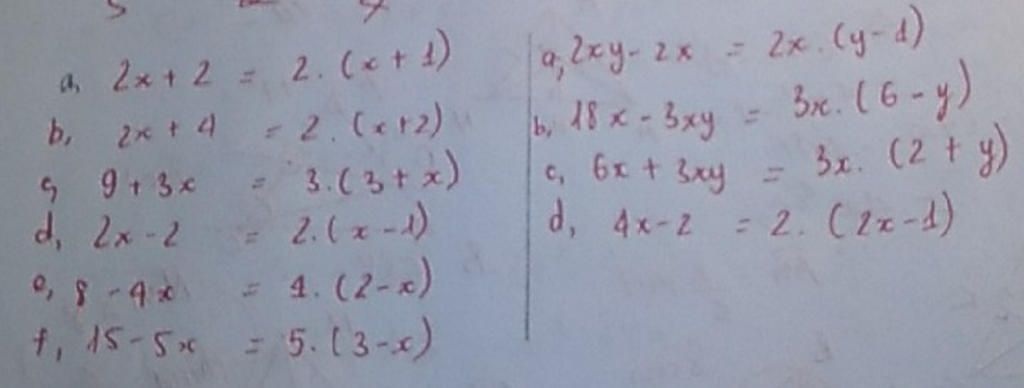 a, 2x + 2 = 2. (x + 1)
b, 2x + 4 = 2. (x + 2)
c, 9 + 3x = 3. (3 + x)
d, 2x - 2 = 2. (x - 1)
e, 8 - 4x = 4. (2 - x)
f, 15 - 5x = 5. (3 - x)
a, 2xy - 2x = 2x. (y - 1)
b, 18x - 3xy = 3x. (6 - y)
c, 6x + 3xy = 3x. (2 + y)
d, 4x - 2 = 2. (2x - 1)